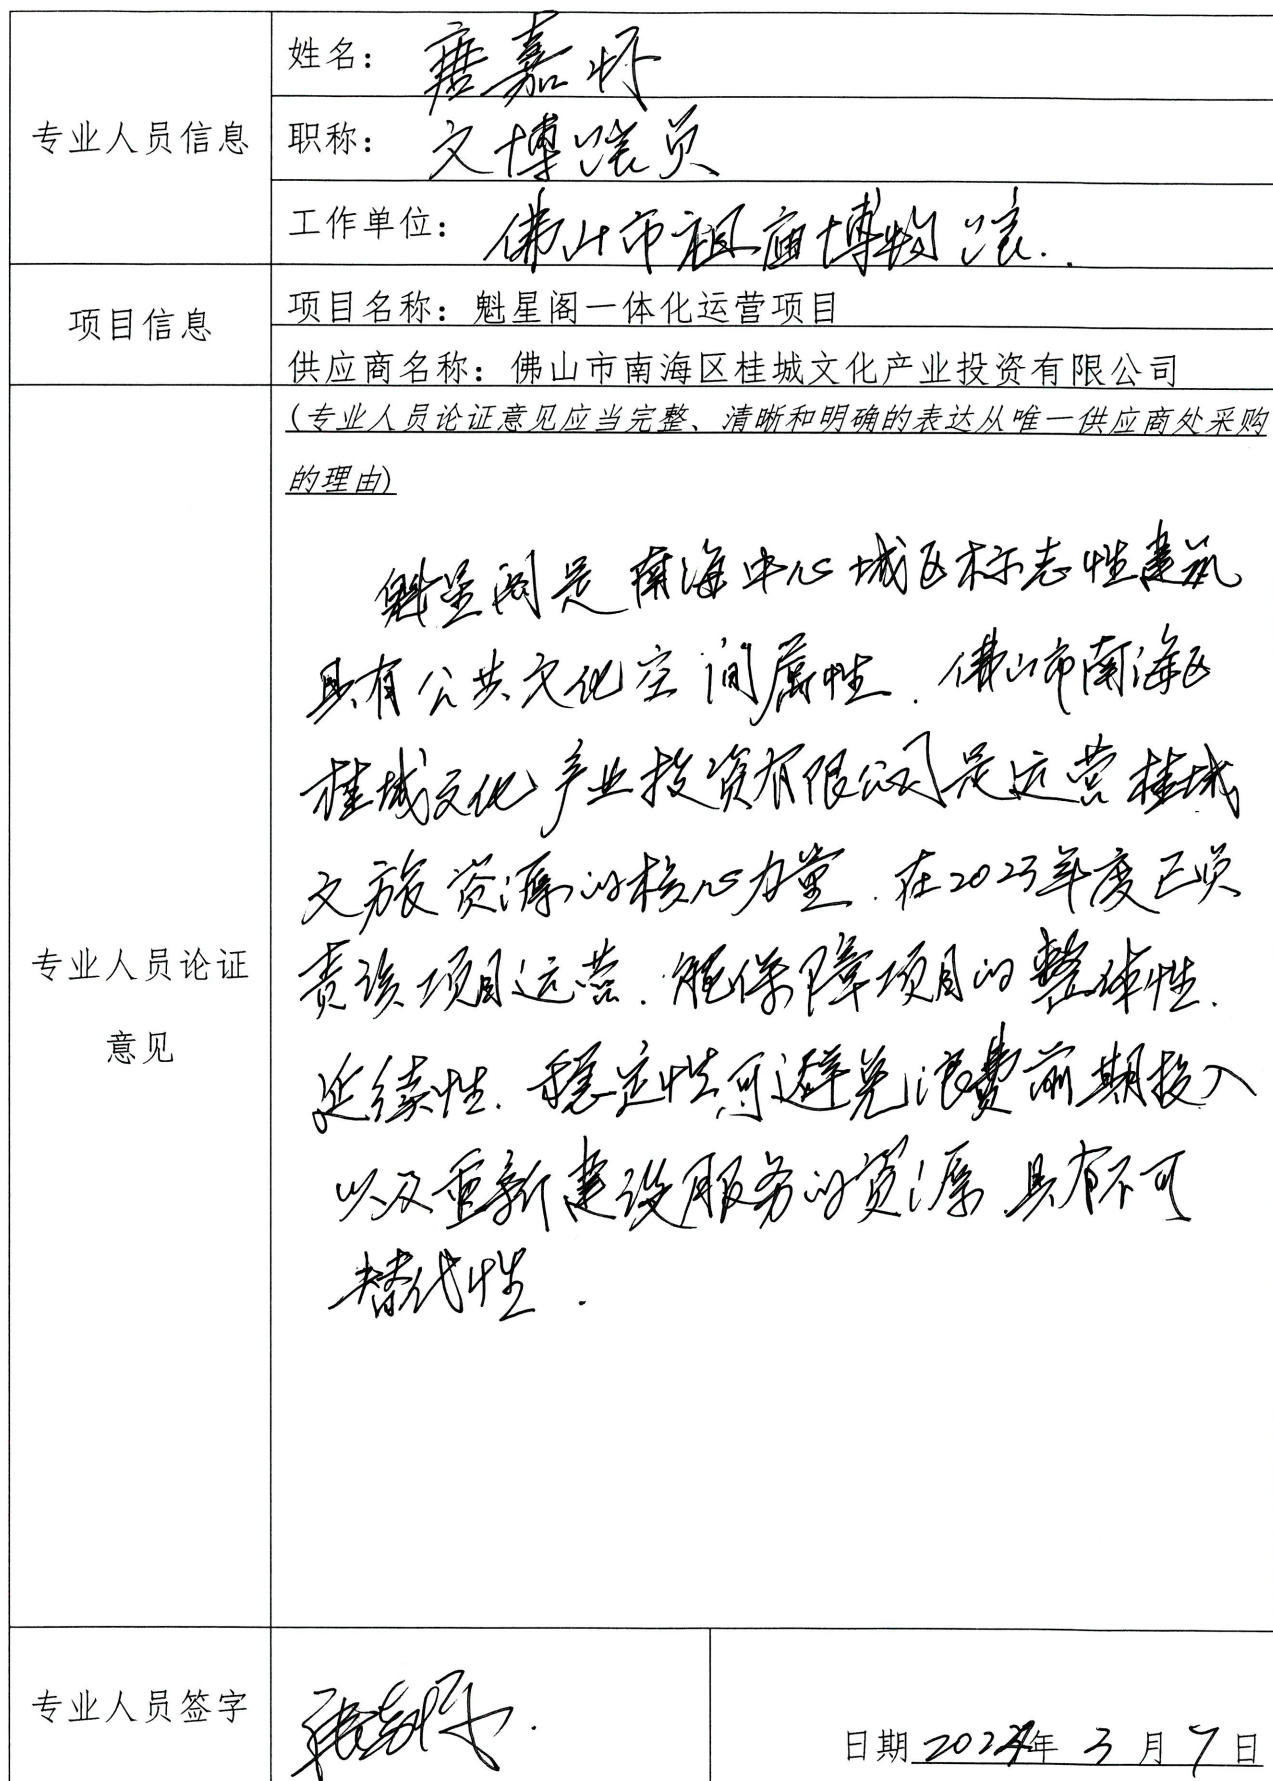 专业人员信息
姓名：唐嘉怀
职称：文博馆员
工作单位：佛山市祖庙博物馆.
项目信息
项目名称：魁星阁一体化运营项目
供应商名称：佛山市南海区桂城文化产业投资有限公司
专业人员论证
意见
(专业人员论证意见应当完整、清晰和明确的表达从唯一供应商处采购
的理由)
魁星阁是南海中心城区标志性建筑
具有公共文化空间属性.佛山市南海区
桂城文化产业投资有限公司是运营桂城
文旅资源的核心力量.在2023年度已负
责该项目运营.能保障项目的整体性.
延续性.稳定性可避免浪费前期投入
以及重新建设服务的资源.具有不可
替代性.
专业人员签字
日期2024年3月7日